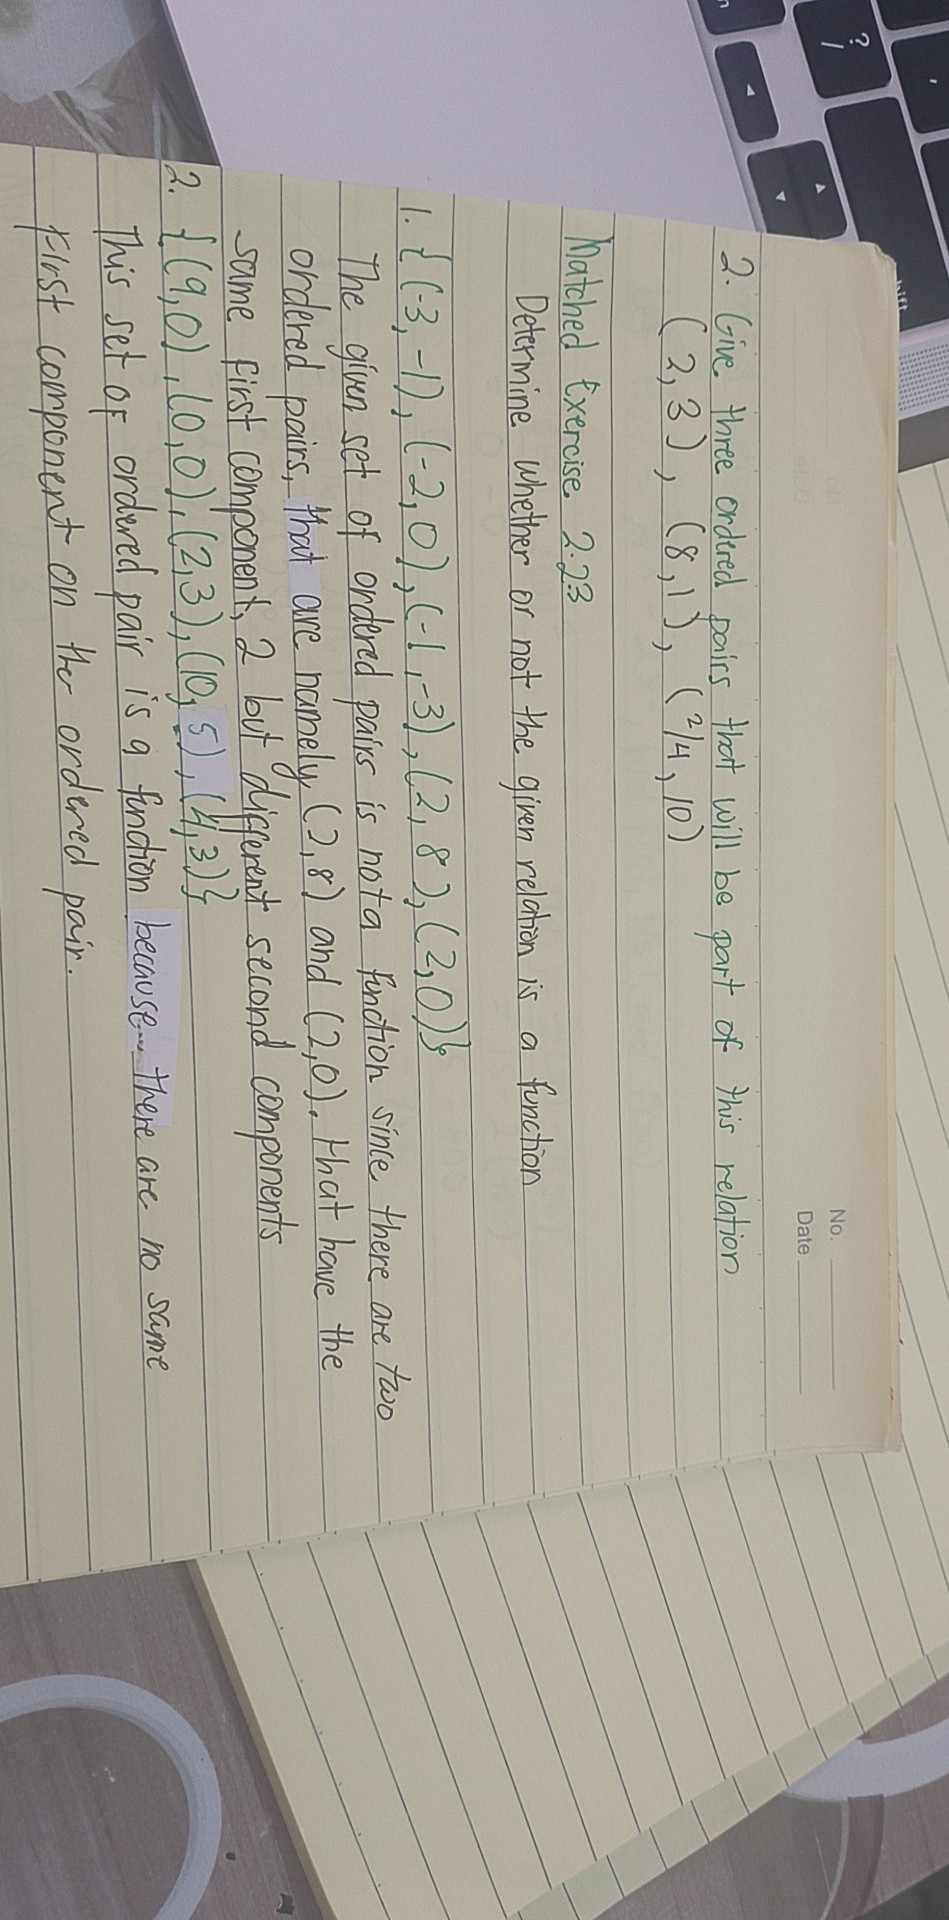 No.
Date
2. Give three ordered pairs that will be part of this relation
(2,3), (8,1), (2/4,10)
Matched Exercise 2.2.3
Determine whether or not the given relation is a function
1. {(-3,-1), (-2,0), (-1,-3), (2,8), (2,0)}
The given set of ordered pairs is not a function since there are two
ordered pairs, that are namely (2,8) and (2,0). that have the
same first component, 2 but different second components
2. {(9,0), (0,0), (2,3), (10,5), (4,3)}
This set of ordered pair is a function because there are no same
first component on the ordered pair.
?
/